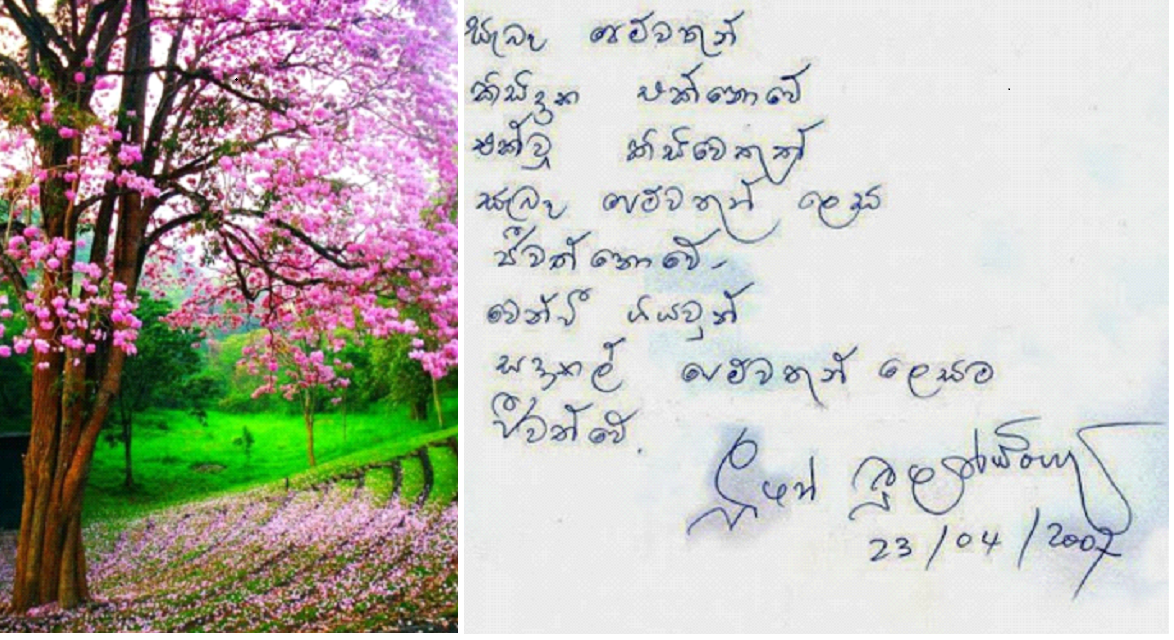 සැබෑ පෙම්වතුන්
කිසිදාක එක්නොවේ
එක්වූ කිසිවෙකුත්
සැබෑ පෙම්වතුන් ලෙස
ජීවත් නොවේ.
වෙන්වී ගියවුන්
සදාකල් පෙම්වතුන් ලෙසම
ජීවත්වේ.
23/04/2007